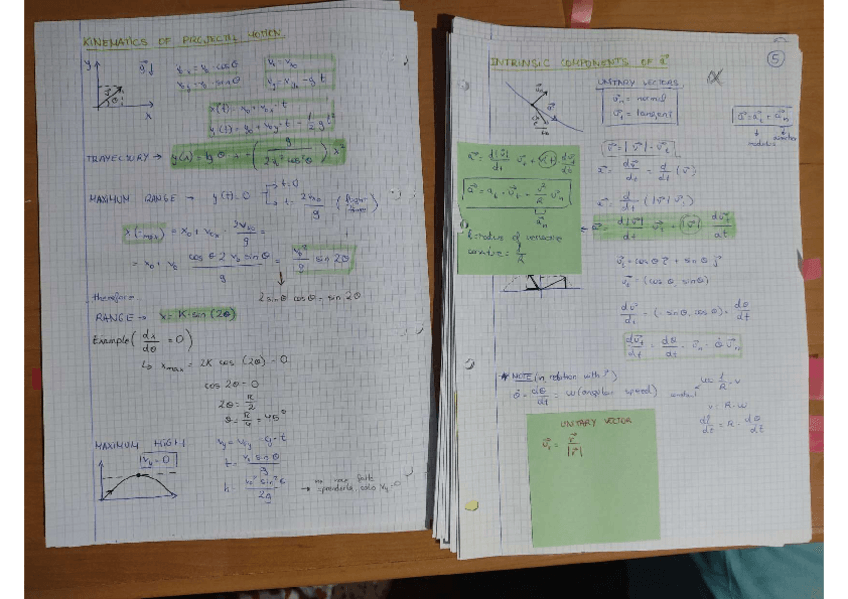 KINEMATICS OF PROJECTIL MOTION
y
g↓
Vx = V0 · cosθ
Vx = Vx0
Vy = V0 · sinθ
Vy = Vy0 - g · t
x
x(t) = x0 + v0x · t
y(t) = y0 + v0y · t - 1/2 g t²
TRAYECTORY → y(x) = tg θ + -( g / 2v0² cos²θ ) x²
MAXIMUM RANGE → y(t)=0
→ t=0
→ t = 2v0 / g
x(tmax) = x0 + v0x · 2vy0 / g =
= x0 + v0 cosθ 2 v0 sinθ / g = v0² / g sin 2θ
therefore
2 sinθ cosθ = sin 2θ
RANGE → x = K · sin (2θ)
Example ( dx/dθ = 0 )
↳ xmax = 2K cos (2θ) = 0
cos 2θ = 0
2θ = π/2
θ = π/4 = 45°
MAXIMUM HIGH
vy = 0
vy = v0y - g · t
t = v0 sinθ / g
h = v0² sin²θ / 2g
→ no nos
solo vy = 0
INTRINSIC COMPONENTS OF a
5
UNITARY VECTORS
un = normal
ut = tangent
a = at + an
v = |v| · ut
a = dv/dt = d/dt (v)
a = d/dt (|v| ut)
a = d|v|/dt ut + |v| dut/dt
a = d|v|/dt · ut + |v| dut/dt
a = at · ut + v²/R un
an
R: radius of
= 1/R
ut = cosθ i + sinθ j
ut = (cosθ, sinθ)
dut/dt = (-sinθ, cosθ) · dθ/dt
dut/dt = dθ/dt · un = θ un
* NOTE (in relation with r)
θ = dθ/dt = ω (angular speed)
ω = 1/R · v
v = R · ω
dl/dt = R · dθ/dt
UNITARY VECTOR
ur = r / |r|